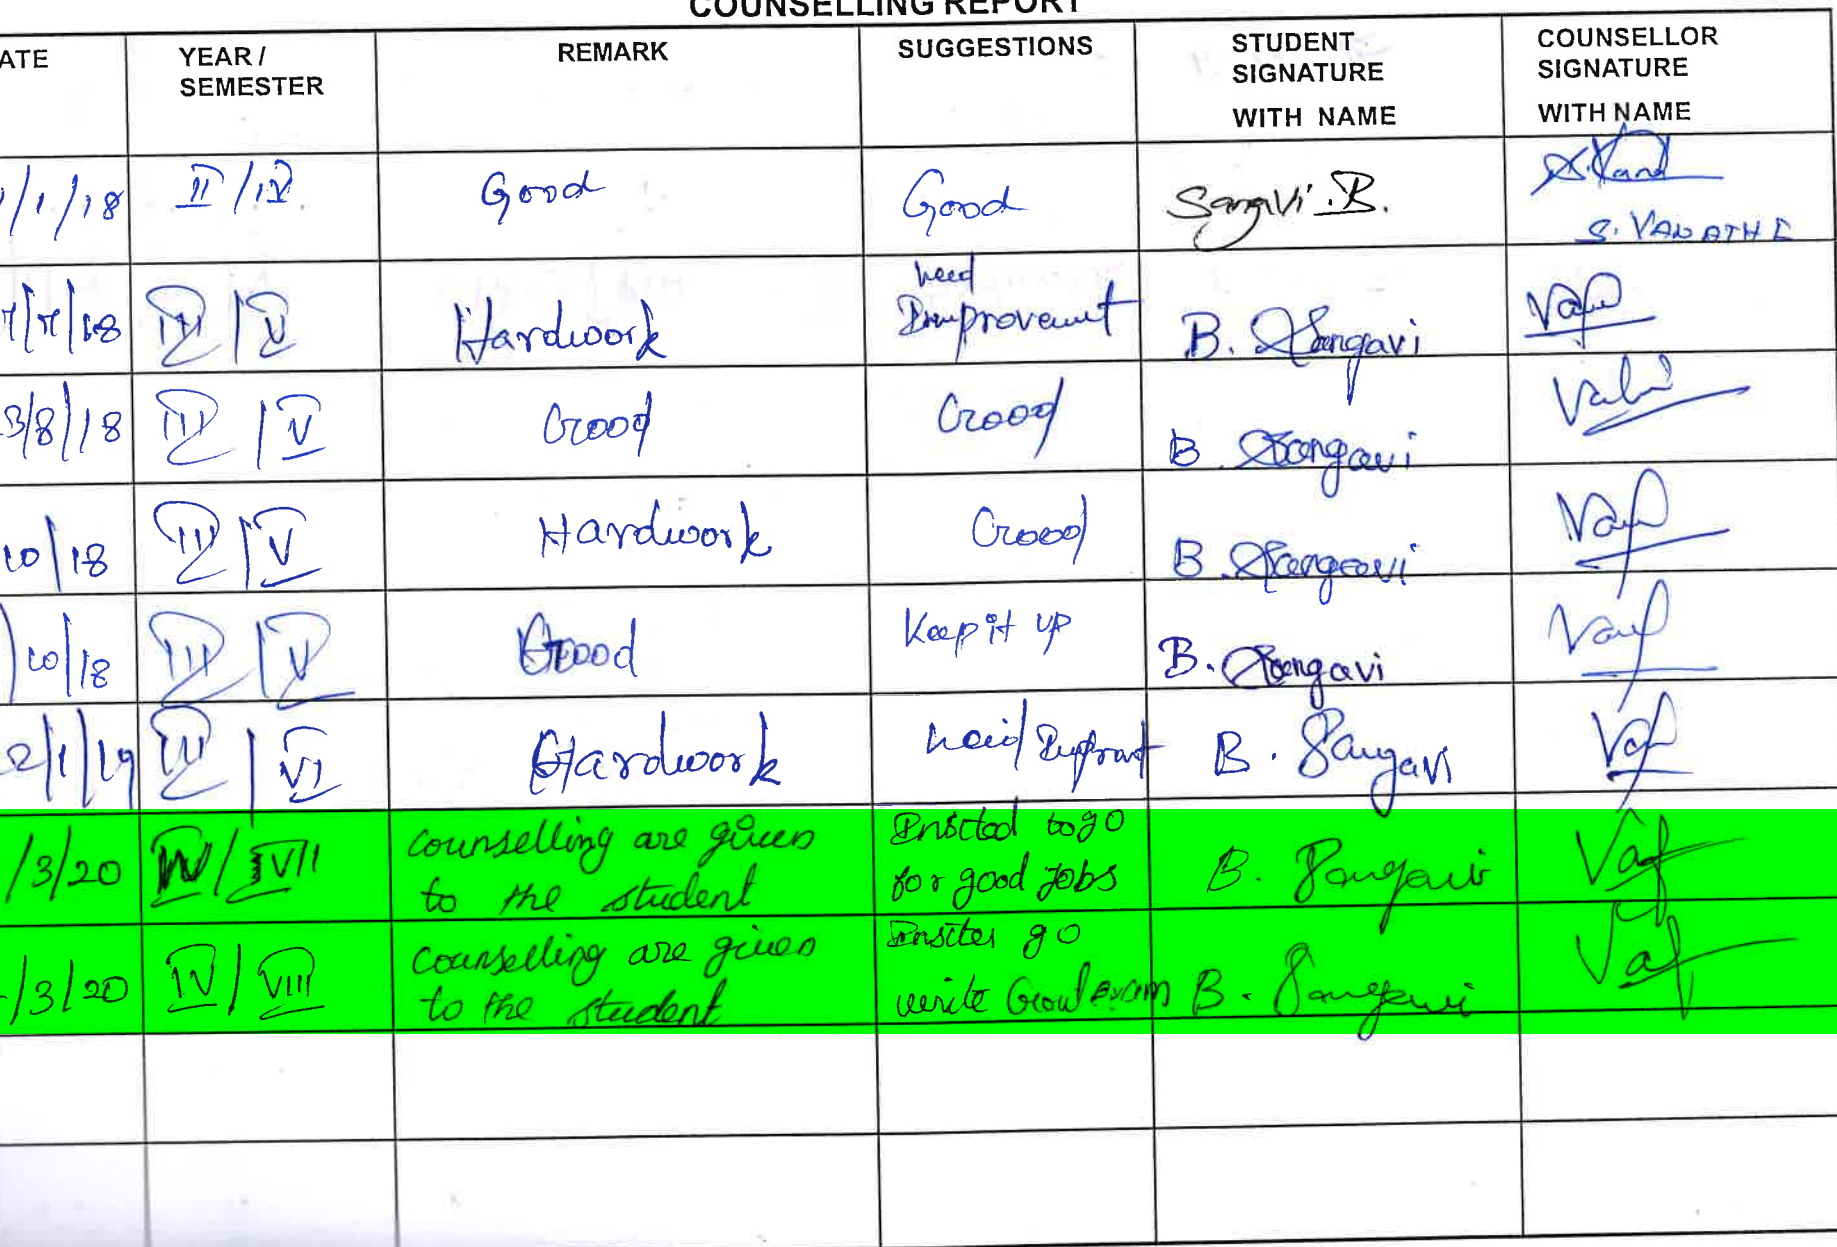 COUNSELLING REPORT
ATE YEAR / SEMESTER REMARK SUGGESTIONS STUDENT SIGNATURE WITH NAME COUNSELLOR SIGNATURE WITH NAME
/1/18 II/IV Good Good Sangavi.B. S. VANATHI
/18 III/V Hardwork need Improvement B. Sangavi
3/8/18 III/V Good Good B. Sangavi
10/18 III/V Hardwork Good B. Sangavi
10/18 III/V Good Keep it up B. Sangavi
2/1/19 III/VI Hardwork need B. Sangavi
/3/20 IV/VII counselling are given to go
to the student for good jobs B. Sangavi
/3/20 IV/VIII counselling are given go
to the student write exam B. Sangavi